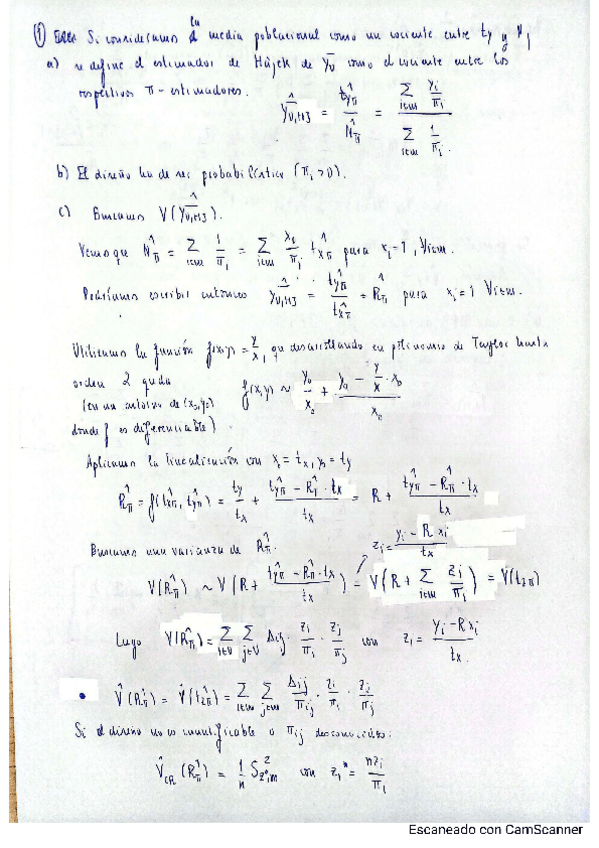 ① Si consideramos la media poblacional como un cociente entre t_y y N,
a) se define el estimador de Hájek de ȳ_U como el cociente entre los
respectivos π-estimadores.
ȳ̂_{U,H3} = t̂_{yπ} / N̂_π = Σ_{i∈m} y_i/π_i / Σ_{i∈m} 1/π_i.
b) El diseño ha de ser probabilístico (π_i > 0).
c) Buscamos V(ȳ̂_{U,H3}).
Vemos que N̂_π = Σ_{i∈m} 1/π_i = Σ_{i∈m} x_i/π_i t̂_{xπ} para x_i = 1, ∀i∈m.
Podríamos escribir entonces ȳ̂_{U,H3} = t̂_{yπ} / t̂_{xπ} = R̂_π para x_i = 1 ∀i∈m.
Utilizamos la función f(x,y) = y/x, que desarrollando en polinomio de Taylor hasta
orden 2 queda f(x,y) ~ y_0/x_0 + (y_0 - y/x · x_0) / x_0
(en un entorno de (x_0,y_0)
donde f es diferenciable)
Aplicamos la linealización con x_0 = t_x, y_0 = t_y
R̂_π = f(t̂_{xπ}, t̂_{yπ}) = t_y/t_x + (t̂_{yπ} - R̂_π · t_x) / t_x = R + (t̂_{yπ} - R̂_π · t_x) / t_x
Buscamos una varianza de R̂_π. z_i = (y_i - R x_i) / t_x
V(R̂_π) ~ V(R + (t̂_{yπ} - R̂_π · t_x) / t_x) = V(R + Σ_{i∈m} z_i/π_i) = V(t̂_{zπ})
Luego V(R̂_π) = Σ_{i∈U} Σ_{j∈U} Δ_{ij} · z_i/π_i · z_j/π_j con z_i = (y_i - R x_i) / t_x.
• V̂(R̂_π) = V̂(t̂_{zπ}) = Σ_{i∈m} Σ_{j∈m} Δ_{ij}/π_{ij} · z_i/π_i · z_j/π_j
Si el diseño no es cuantificable o π_{ij} desconocidos:
V̂_{CR}(R̂_π) = 1/n S²_{z*,m} con z_i* = n z_i / π_i
Escaneado con CamScanner